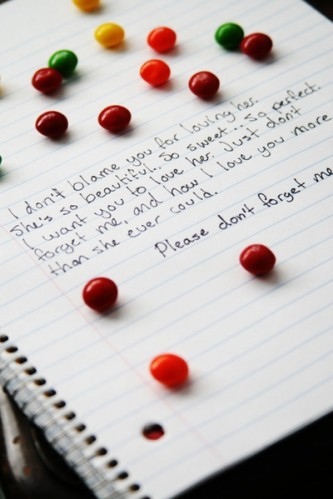 I don't blame you for loving her.
She's so beautiful. So sweet... so perfect.
I want you to love her. Just don't
forget me, and how I love you more
than she ever could.
Please don't forget me